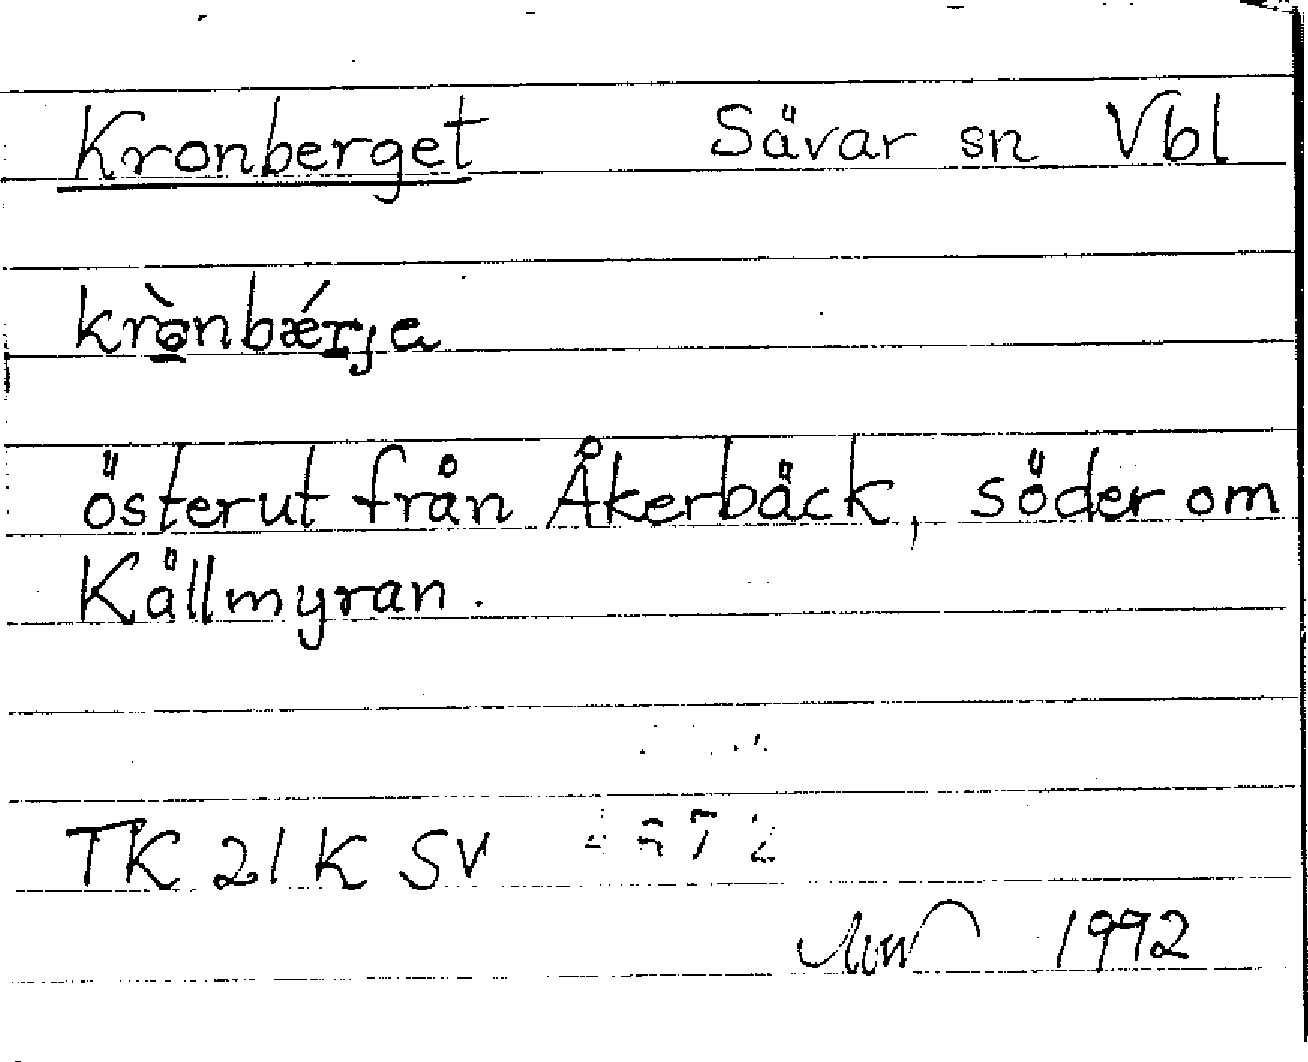 Kronberget Sävar sn Vbl
österut från Åkerbäck, söder om
Källmyran.
TK 21 K SV
1992